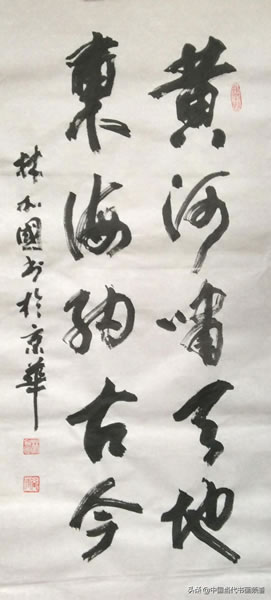 黄河嘯天地
東海納古今
林加國书於京華
头条 @中国当代书画频道